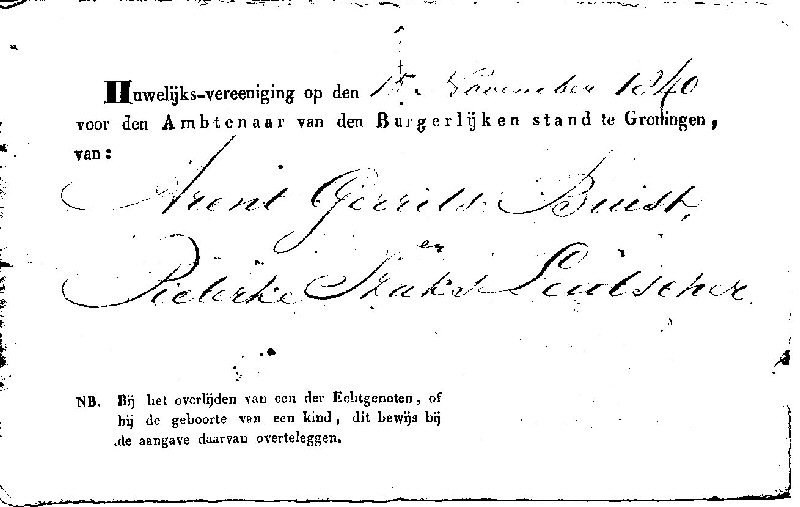 Huwelijks-vereeniging op den 15 November 1840
voor den Ambtenaar van den Burgerlijken stand te Groningen,
van:
Arent Gerrits Buist,
en
Pieterke Leutscher
NB. Bij het overlijden van een der Echtgenoten, of
bij de geboorte van een kind, dit bewijs bij
de aangave daarvan overteleggen.